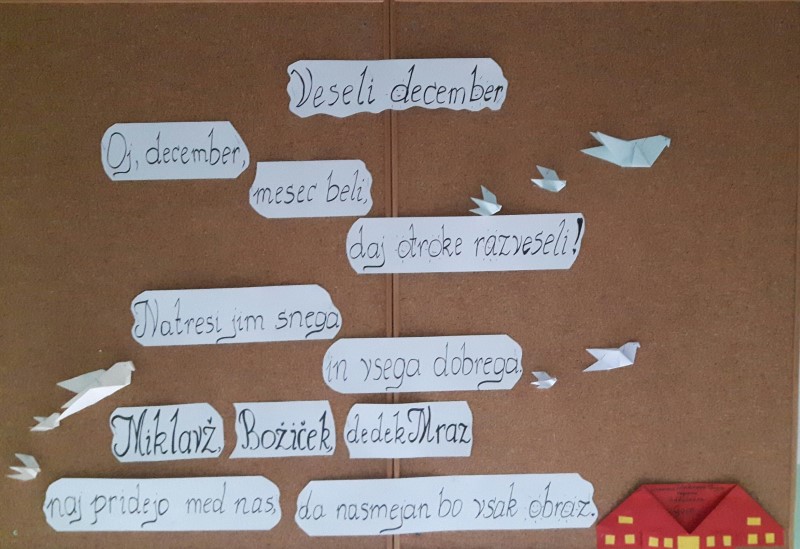 Veseli december
Oj, december,
mesec beli,
daj otroke razveseli!
Natresi jim snega
in vsega dobrega.
Miklavž, Božiček, dedek Mraz
naj pridejo med nas,
da nasmejan bo vsak obraz.